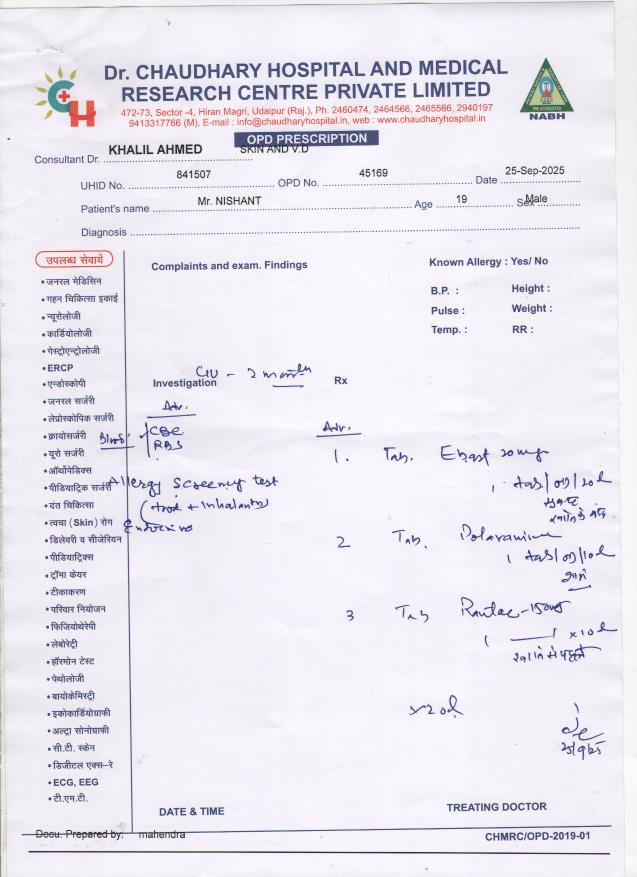 Dr. CHAUDHARY HOSPITAL AND MEDICAL
RESEARCH CENTRE PRIVATE LIMITED
472-73, Sector -4, Hiran Magri, Udaipur (Raj.), Ph. 2460474, 2464566, 2465566, 2940197
9413317766 (M), E-mail : info@chaudharyhospital.in, web : www.chaudharyhospital.in
NABH
OPD PRESCRIPTION
Consultant Dr. KHALIL AHMED SKIN AND V.D
UHID No. 841507 OPD No. 45169 Date 25-Sep-2025
Patient's name Mr. NISHANT Age 19 Sex Male
Diagnosis
उपलब्ध सेवायें
Complaints and exam. Findings
Known Allergy : Yes/ No
B.P. : Height :
Pulse : Weight :
Temp. : RR :
• जनरल मेडिसिन
• गहन चिकित्सा इकाई
• न्यूरोलोजी
• कार्डियोलोजी
• गेस्ट्रोएन्ट्रोलोजी
• ERCP
• एन्डोस्कोपी
• जनरल सर्जरी
• लेप्रोस्कोपिक सर्जरी
• क्रायोसर्जरी
• यूरो सर्जरी
• ऑर्थोपेडिक्स
• पीडियाट्रिक सर्जरी
• दंत चिकित्सा
• त्वचा (Skin) रोग
• डिलेवरी व सीजेरियन
• पीडियाट्रिक्स
• ट्रॉमा केयर
• टीकाकरण
• परिवार नियोजन
• फिजियोथेरेपी
• लेबोरेट्री
• हॉरमोन टेस्ट
• पेथोलोजी
• बायोकेमिस्ट्री
• इकोकार्डियोग्राफी
• अल्ट्रा सोनोग्राफी
• सी.टी. स्केन
• डिजीटल एक्स–रे
• ECG, EEG
• टी.एम.टी.
CIU - 2 month
Investigation Rx
Adv.
Blood CBC
RBS
Allergy Screening test
(food + Inhalants)
Adv.
1. Tab. Ebast 20mg
2 Tab. Polaramine
3 Tab Rantac-150mg
1 1 x10d
x20d
25/9/25
DATE & TIME TREATING DOCTOR
Docu. Prepared by: mahendra
CHMRC/OPD-2019-01